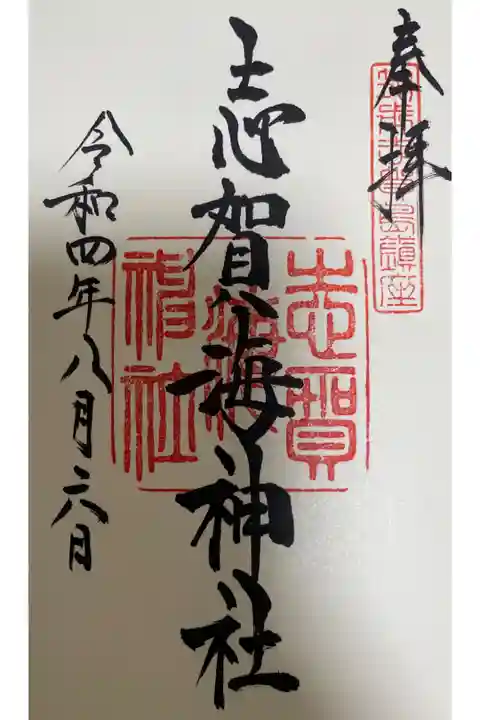 奉拝
志賀海神社
志賀
海神社
令和四年八月六日